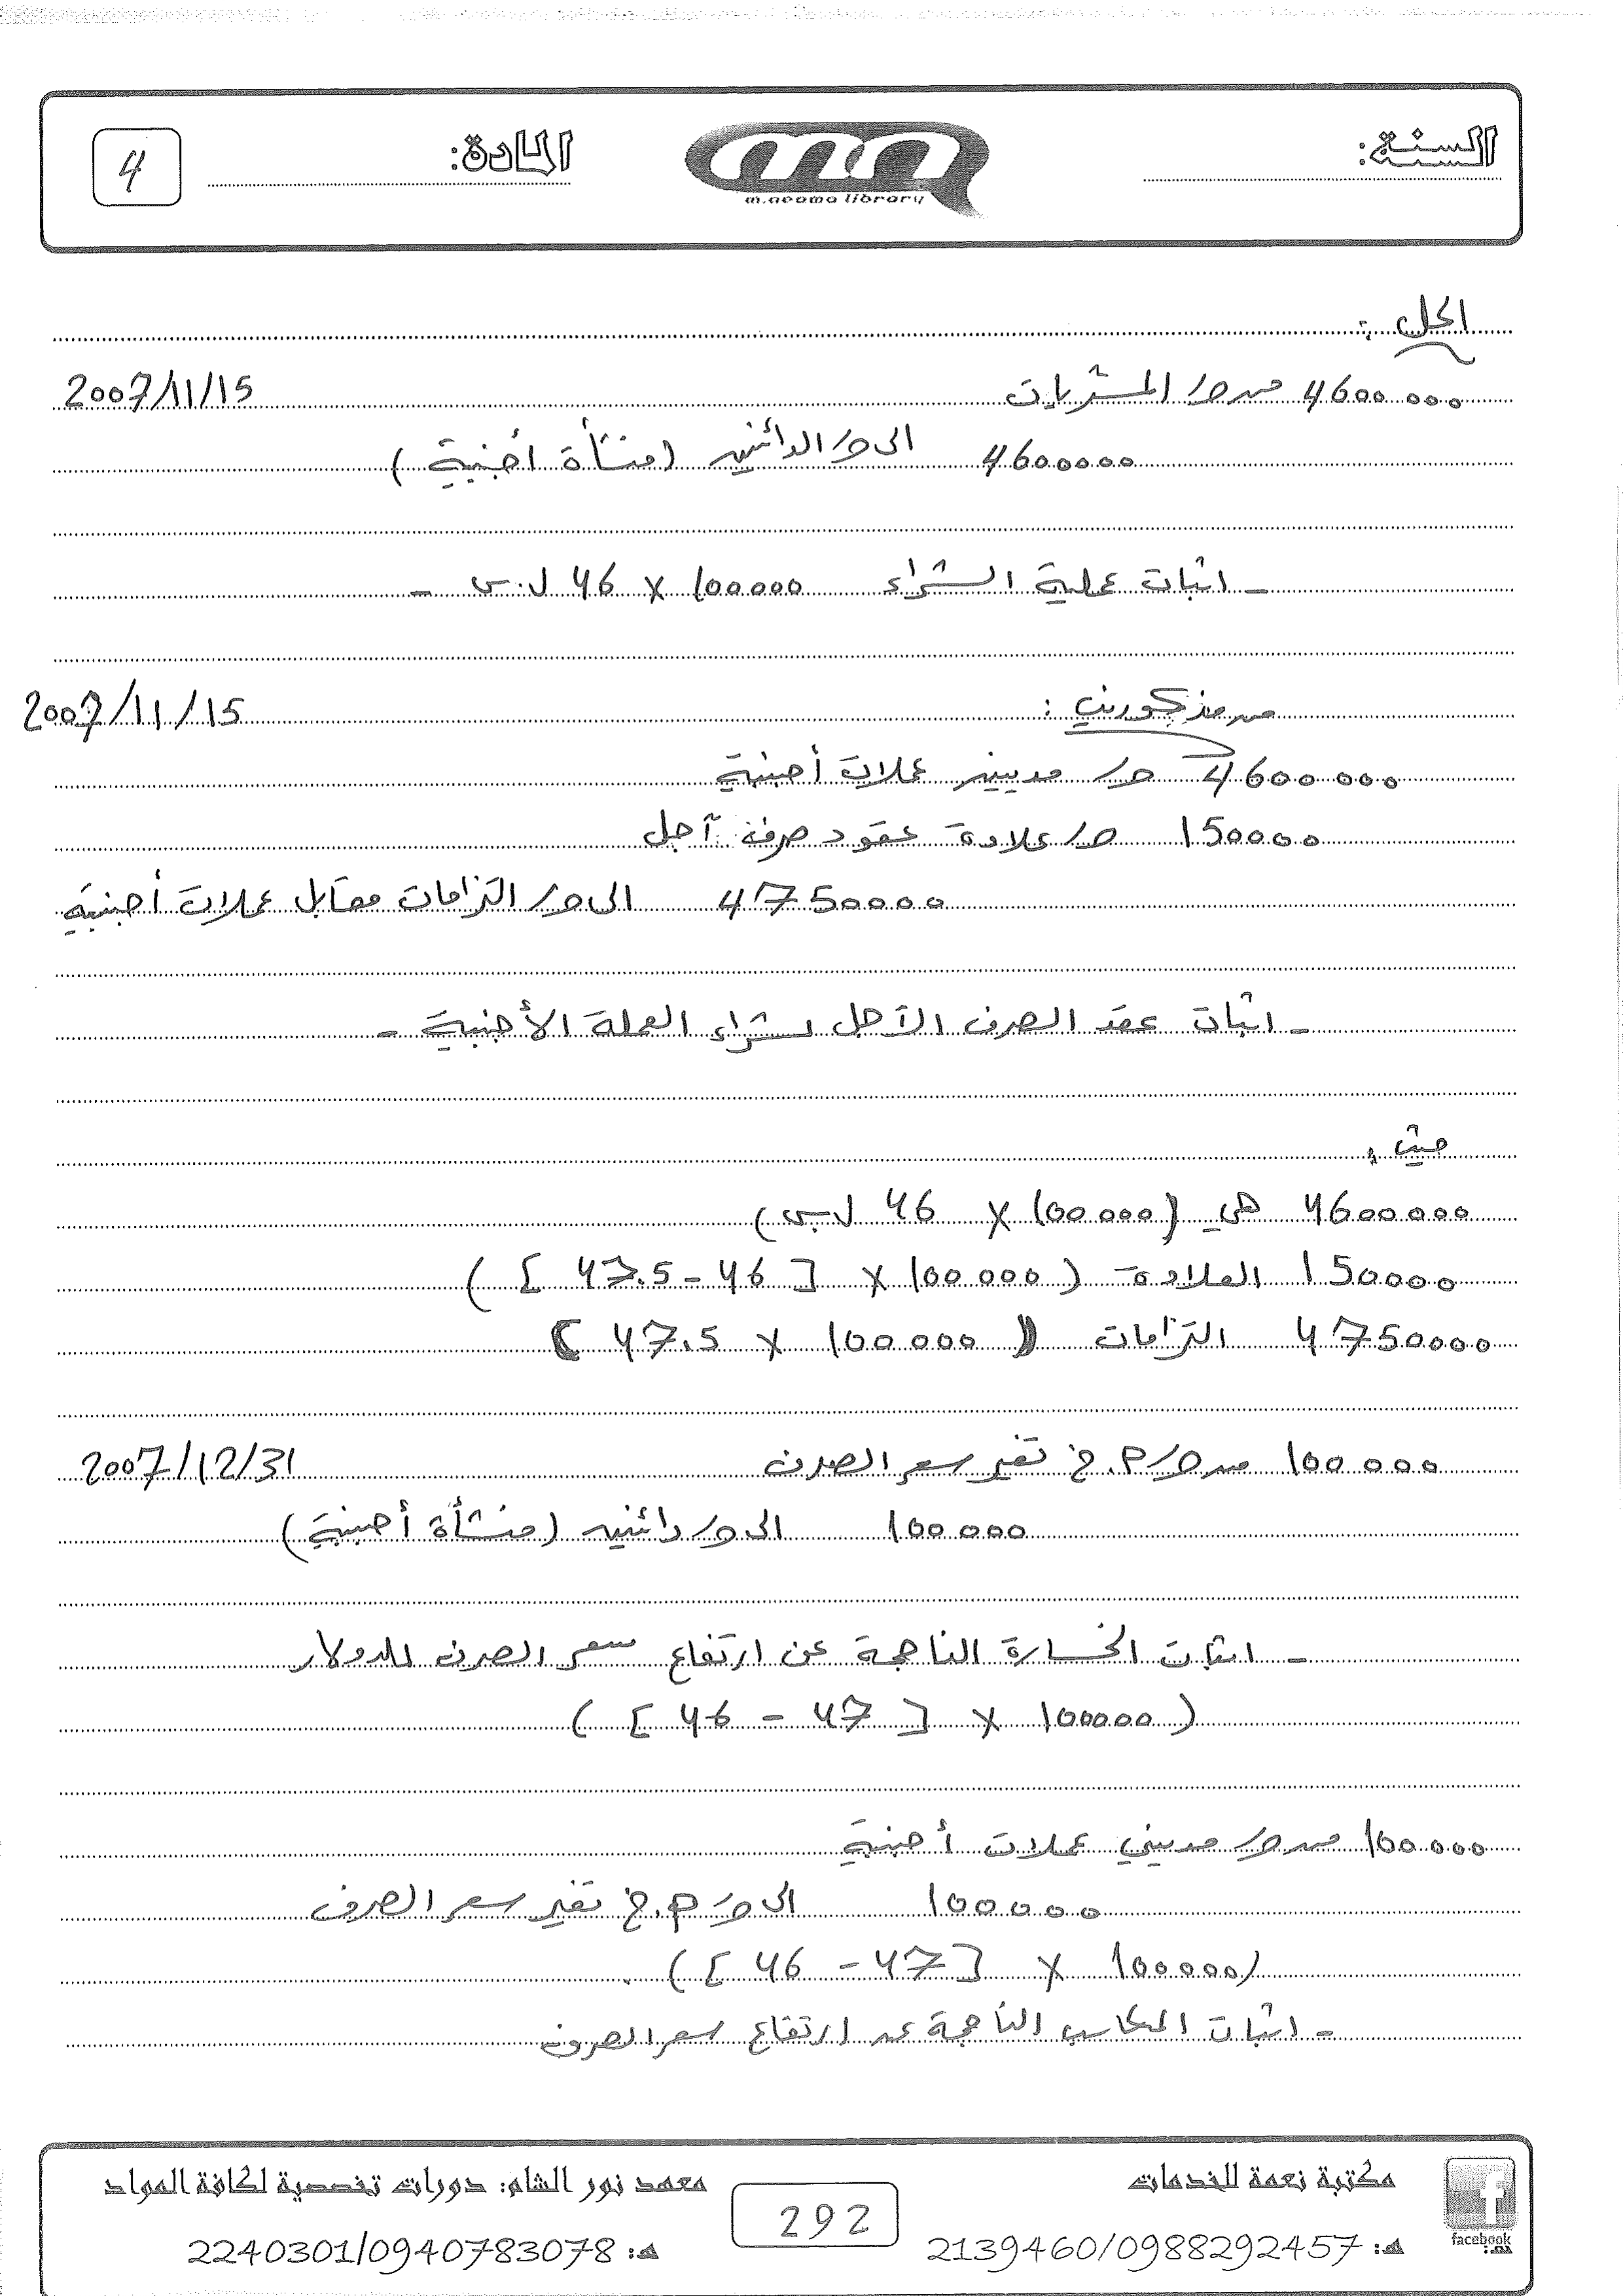 السنة:
المادة:
4
m.neama library
الحل:
4600000 من ح/ المشتريات 2007/11/15
4600000 الى ح/ الدائنين (منشأة أجنبية)
- اثبات عملية الشراء 100000 × 46 ل.س -
من مذكورين: 2007/11/15
4600000 ح/ مدينين عملات أجنبية
150000 ح/ علاوة عقود صرف آجل
4750000 الى ح/ التزامات مقابل عملات أجنبية
- اثبات عقد الصرف الآجل لشراء العملة الأجنبية -
حيث:
4600000 هي (100000 × 46 ل.س)
150000 العلاوة (100000 × [46 - 47.5])
4750000 التزامات (100000 × 47.5)
100000 من ح/ م.خ تغير سعر الصرف 2007/12/31
100000 الى ح/ دائنين (منشأة أجنبية)
- اثبات الخسارة الناجمة عن ارتفاع سعر الصرف للدولار
(100000 × [47 - 46])
100000 من ح/ مديني عملات أجنبية
100000 الى ح/ م.خ تغير سعر الصرف
(100000 × [47 - 46])
- اثبات المكاسب الناجمة عن ارتفاع سعر الصرف
مكتبة نعمة للخدمات
هـ: 2139460/0988292457
facebook
292
معهد نور الشام: دورات تخصصية لكافة المواد
هـ: 2240301/0940783078